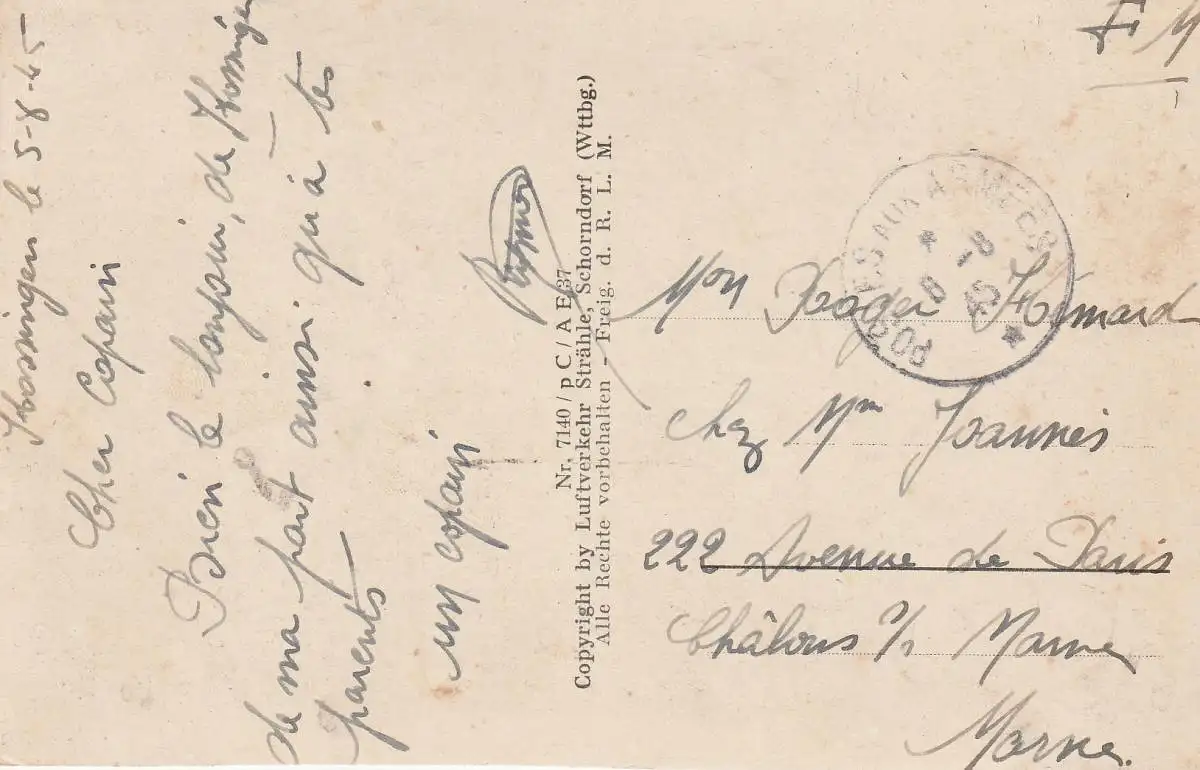 Trossingen le 5-8-45
Cher Copain
Bien le bonjour, de Trossingen
de ma part ainsi qu'à tes
parents.
un copain
Nr. 7140 / p C / A E 37
Copyright by Luftverkehr Strähle, Schorndorf (Wttbg.)
Alle Rechte vorbehalten - Freig. d. R. L. M.
F M
POSTES AUX ARMEES
8-8
45
Mon Roger Hémard
Chez Mm Joannès
222 Avenue de Paris
Châlons s/s Marne
Marne.